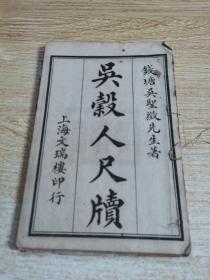 錢塘吳聖徵先生著
吳穀人尺牘
上海文瑞樓印行